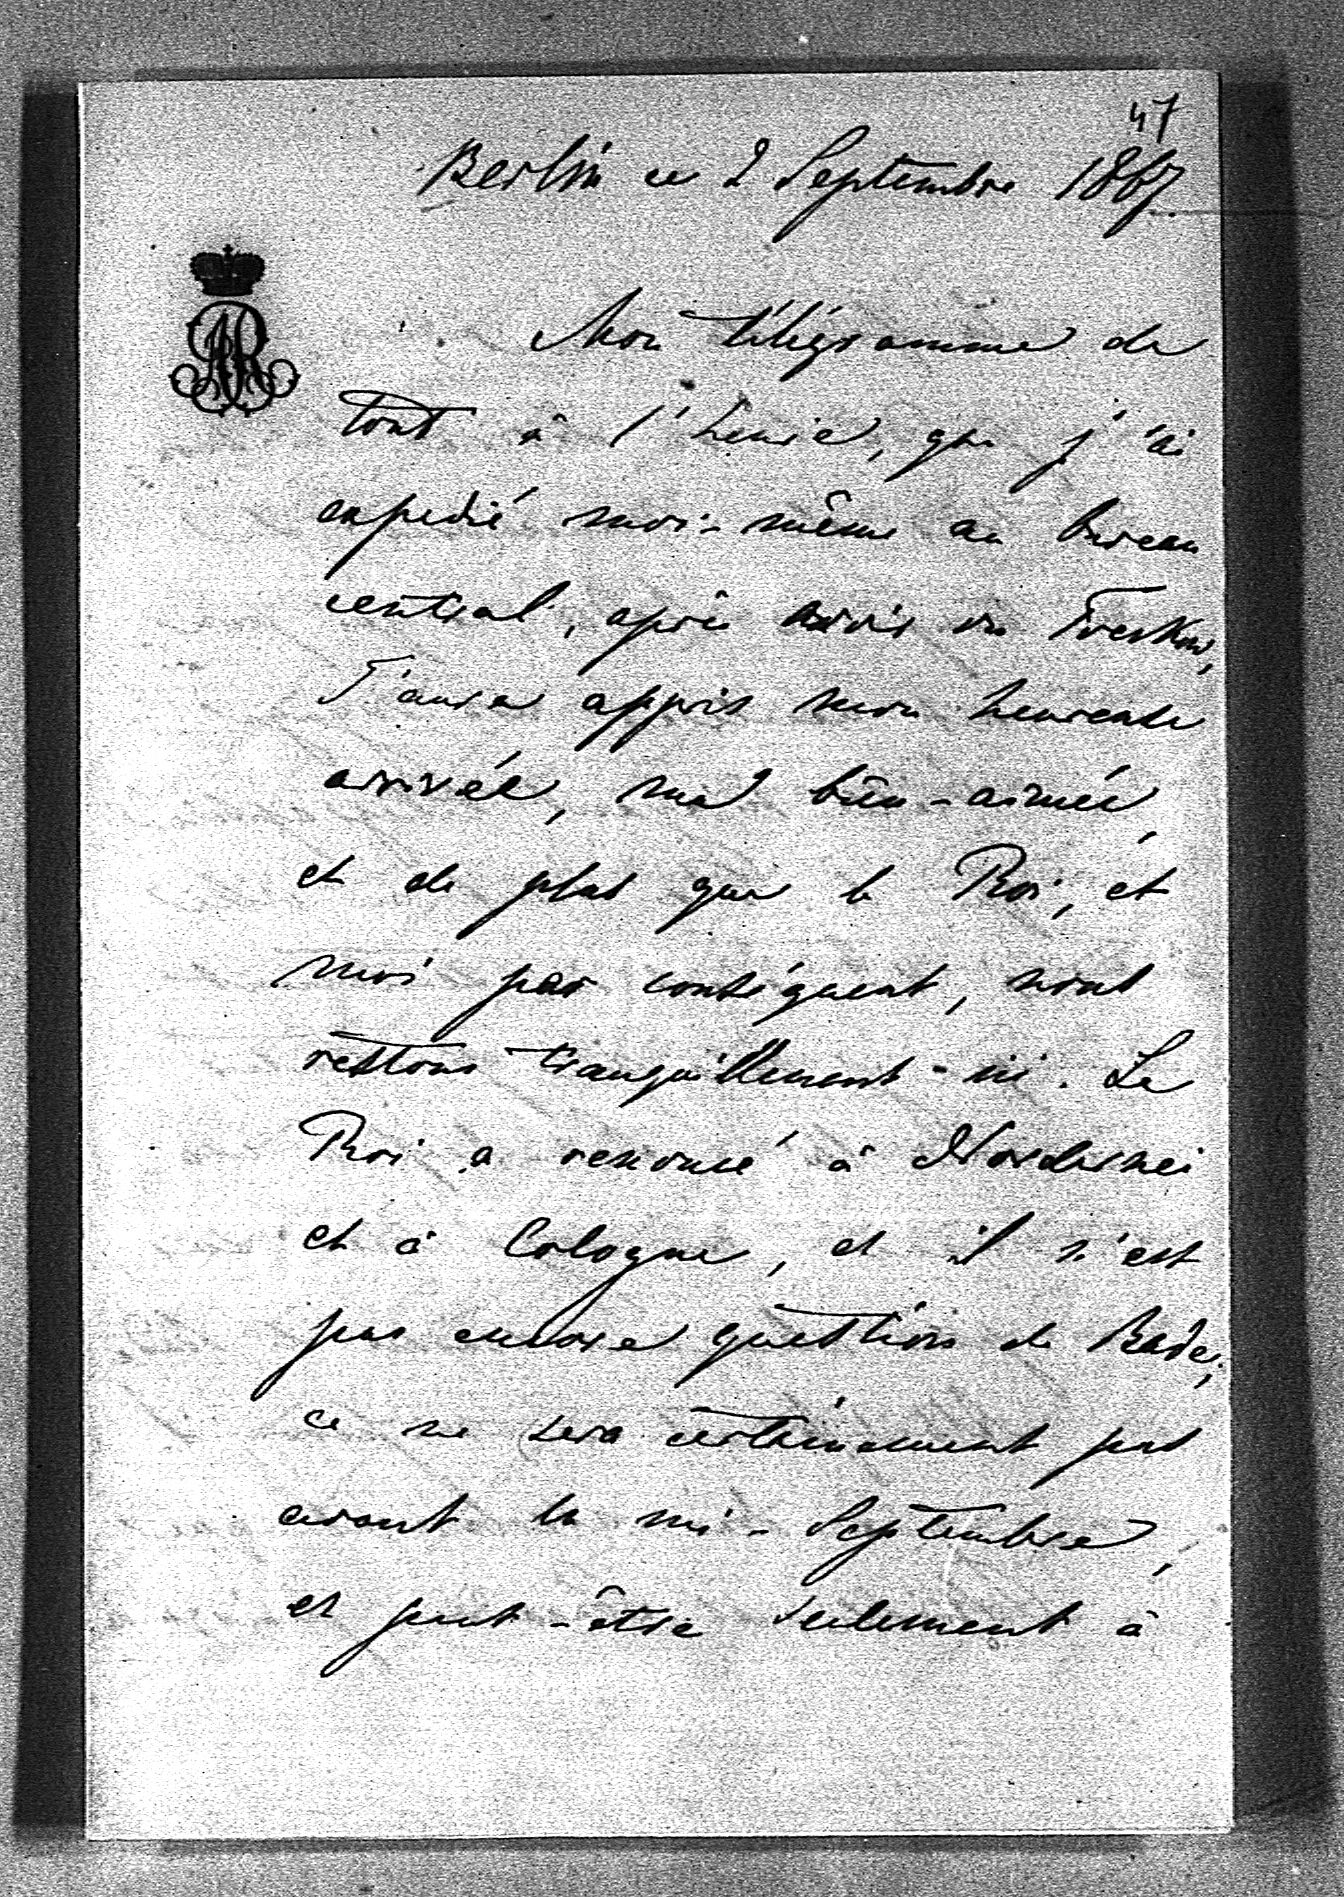 47
Berlin ce 2 Septembre 1867.
Mon télégramme de
tout à l'heure, que j'ai
expedié moi-même au bureau
central, après avoir vu Treskow,
T'aura appris mon heureuse
arrivée, ma bien-aimée,
et de plus que le Roi, et
moi par conséquent, nous
restons tranquillement ici. Le
Roi a renoncé à Nordernei
et à Cologne, et il n'est
pas encore question de Bade;
ce ne sera certainement pas
avant la mi-Septembre,
et peut-être seulement à